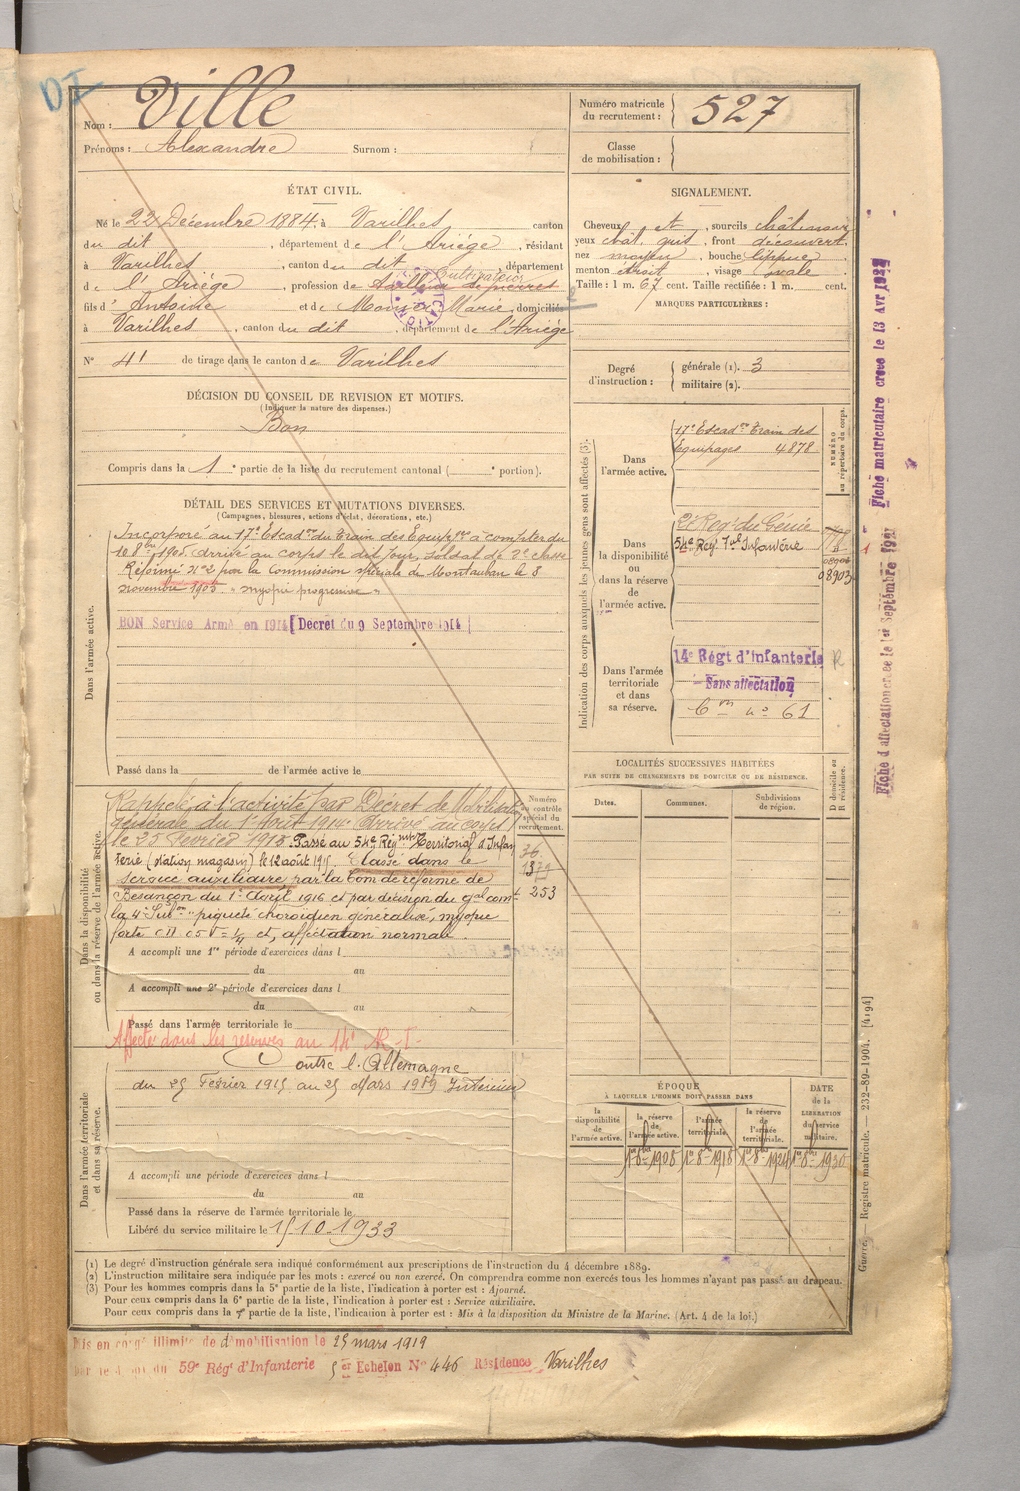 DI
Nom : Ville
Prénoms : Alexandre Surnom :
Numéro matricule du recrutement : 527
Classe de mobilisation :
ÉTAT CIVIL.
Né le 22 Décembre 1884, à Varilhes canton
du dit, département de l'Ariége, résidant
à Varilhes, canton du dit, département
de l'Ariége, profession de Tailleur de pierres Cultivateur
fils d' Antoine et de Marie, domiciliés
à Varilhes, canton du dit, département de l'Ariége
N° 41 de tirage dans le canton de Varilhes
SIGNALEMENT.
Cheveux et, sourcils châtains
yeux chât. gris, front découvert,
nez moyen, bouche lippue,
menton droit, visage ovale
Taille : 1 m. 67 cent. Taille rectifiée : 1 m. cent.
MARQUES PARTICULIÈRES :
Degré d'instruction :
générale (1). 3
militaire (2).
DÉCISION DU CONSEIL DE REVISION ET MOTIFS.
(Indiquer la nature des dispenses.)
Bon
Compris dans la 1e partie de la liste du recrutement cantonal ( e portion).
DÉTAIL DES SERVICES ET MUTATIONS DIVERSES.
(Campagnes, blessures, actions d'éclat, décorations, etc.)
Dans l'armée active.
Incorporé au 17e Escadon du Train des Equipages à compter du
8 8bre 1905 arrivé au corps le dit jour, soldat de 2e classe
Réformé N°2 par la Commission spéciale de Montauban le 8
novembre 1905 "myopie progressive"
BON Service Armé en 1914 [Décret du 9 Septembre 1914]
Passé dans la de l'armée active le
Indication des corps auxquels les jeunes gens sont affectés (3).
NUMÉRO au répertoire du corps.
Dans l'armée active.
17e Escadon Train des
Equipages 4878
Dans la disponibilité ou dans la réserve de l'armée active.
2e Reg. du Génie
54e Rég Tal Infanterie
08903
Dans l'armée territoriale et dans sa réserve.
14e Régt d'Infanterie R
Sans affectation
Cm n° 61
LOCALITÉS SUCCESSIVES HABITÉES
PAR SUITE DE CHANGEMENTS DE DOMICILE OU DE RÉSIDENCE.
Dates. Communes. Subdivisions de région. D domicile ou R résidence.
Dans la disponibilité ou dans la réserve de l'armée active.
Numéro au contrôle spécial du recrutement.
Rappelé à l'activité par Décret de Mobilisation
générale du 1er Août 1914. Arrivé au corps
le 25 Février 1915. Passé au 54e Régiment Territorial d'Infan
terie (station magasin) le 12 août 1915. Classé dans le
service auxiliaire par la Com de réforme de
Besançon du 1er Avril 1916 et par décision du gal comt
la 4e Subon "piqueté choroïdien généralisé, myopie
forte
affectation normale.
253
A accompli une 1re période d'exercices dans l
du au
A accompli une 2e période d'exercices dans l
du au
Passé dans l'armée territoriale le
Affecté dans les réserves au 14e R.I.
Dans l'armée territoriale et dans sa réserve.
Contre l'Allemagne
du 25 Février 1915 au 25 Mars 1919 Intérieur
A accompli une période d'exercices dans l
du au
Passé dans la réserve de l'armée territoriale le
Libéré du service militaire le 15.10.1933
ÉPOQUE
À LAQUELLE L'HOMME DOIT PASSER DANS
la disponibilité de l'armée active.
la réserve de l'armée active.
l'armée territoriale.
la réserve de l'armée territoriale.
DATE de la LIBÉRATION du service militaire.
1er 8bre 1908 1er 8bre 1918 1er 8bre 1924 1er 8bre 1930
(1) Le degré d'instruction générale sera indiqué conformément aux prescriptions de l'instruction du 4 décembre 1889.
(2) L'instruction militaire sera indiquée par les mots : exercé ou non exercé. On comprendra comme non exercés tous les hommes n'ayant pas passé au drapeau.
(3) Pour les hommes compris dans la 5e partie de la liste, l'indication à porter est : Ajourné.
Pour ceux compris dans la 6e partie de la liste, l'indication à porter est : Service auxiliaire.
Pour ceux compris dans la 7e partie de la liste, l'indication à porter est : Mis à la disposition du Ministre de la Marine. (Art. 4 de la loi.)
Mis en congé illimité de démobilisation le 25 mars 1919
du 59e Régt d'Infanterie 5er Echelon N° 446 Résidence Varilhes
Fiche matriculaire créée le 13 Avr
Fiche d'affectation créée le 1er Septembre 1927
Guerre. — Registre matricule. — 232-89-1904. [4194]